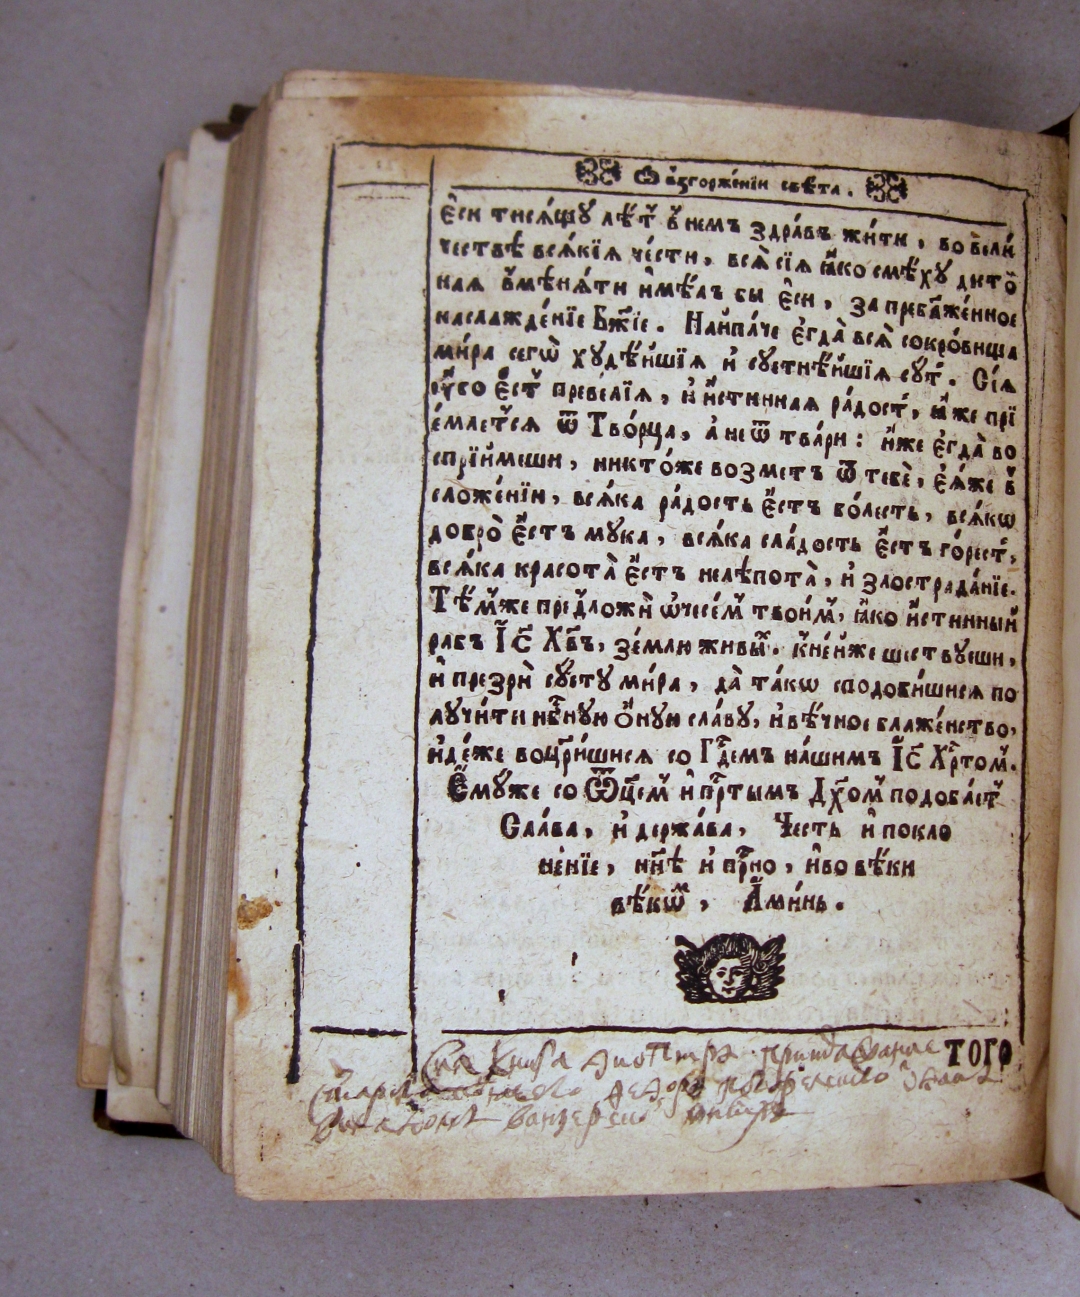 Ѡ возгорженіи свѣта.
є҆сѝ тисѧ́щꙋ лѣ́т̾ в̾ не́мъ здра́въ жи́ти, во вели́
чествѣ всѧ́кїѧ че́сти, всѧ̀ сїѧ̀ ꙗ҆́ко смѣ́хꙋ дито̑
наѧ в̾мѣнѧ́ти и҆мѣ́лъ бы є҆сѝ, за пребл҃же́нное
наслажде́нїе Бж҃їе. Наипа́че є҆гда̀ всѧ̀ сокро́вища
ми́ра сегѡ̀ хꙋдѣ́йшїѧ и҆ сꙋетнѣ́йшїѧ сꙋ́т̾. Сїѧ̀
ᲂу҆́бо є҆́ст̾ превелїѧ, и҆ и҆́стиннаѧ ра́дост̾, ꙗ҆́же прї
е́млетсѧ ѿ Тво́рца, а҆ не ѿ тва́ри: и҆́же є҆гда̀ во
спрїи́меши, никто́же возметъ ѿ тебѐ, є҆ѧ́же в̾
сложе́нїи, всѧ́ка ра́дость є҆́стъ бо́лесть, всѧ́кѡ
добро̀ є҆́стъ мꙋка, всѧ́ка сла́дость є҆́стъ го́рест̾,
всѧ́ка красота̀ є҆́стъ нелѣпота̀, и҆ злострада́нїе.
Тѣ́м̾же пред̾ложѝ ѡ҆чесе́м̾ твои́м̾, ꙗ҆́ко и҆́стинный
рабъ І҆и҃с Хв҃ъ, зе́млю живы́х̾. к̾ не́йже шествꙋеши,
и҆ презрѝ сꙋетꙋ ми́ра, да̀ та́кѡ сподоби́шисѧ по
лꙋчи́ти нбⷭ҇нꙋю ѻ҆́нꙋю сла́вꙋ, и҆ вѣ́чное блаже́нство,
и҆дѣ́же воцр҃и́шисѧ со Гдⷭ҇емъ на́шимъ І҆и҃с Хрⷭ҇том̾.
Є҆мꙋже со Ѿц҃ем̾ и҆ прⷭ҇тымъ Дх҃ом̾ подоба́ет̾
Сла́ва, и҆ держа́ва, Че́сть и҆ покло
не́нїе, нн҃ѣ и҆ прⷭ҇но, и҆ во вѣ́ки
вѣ́кѡм̾, А҆ми́нь.
ТОГО
Сиа книга